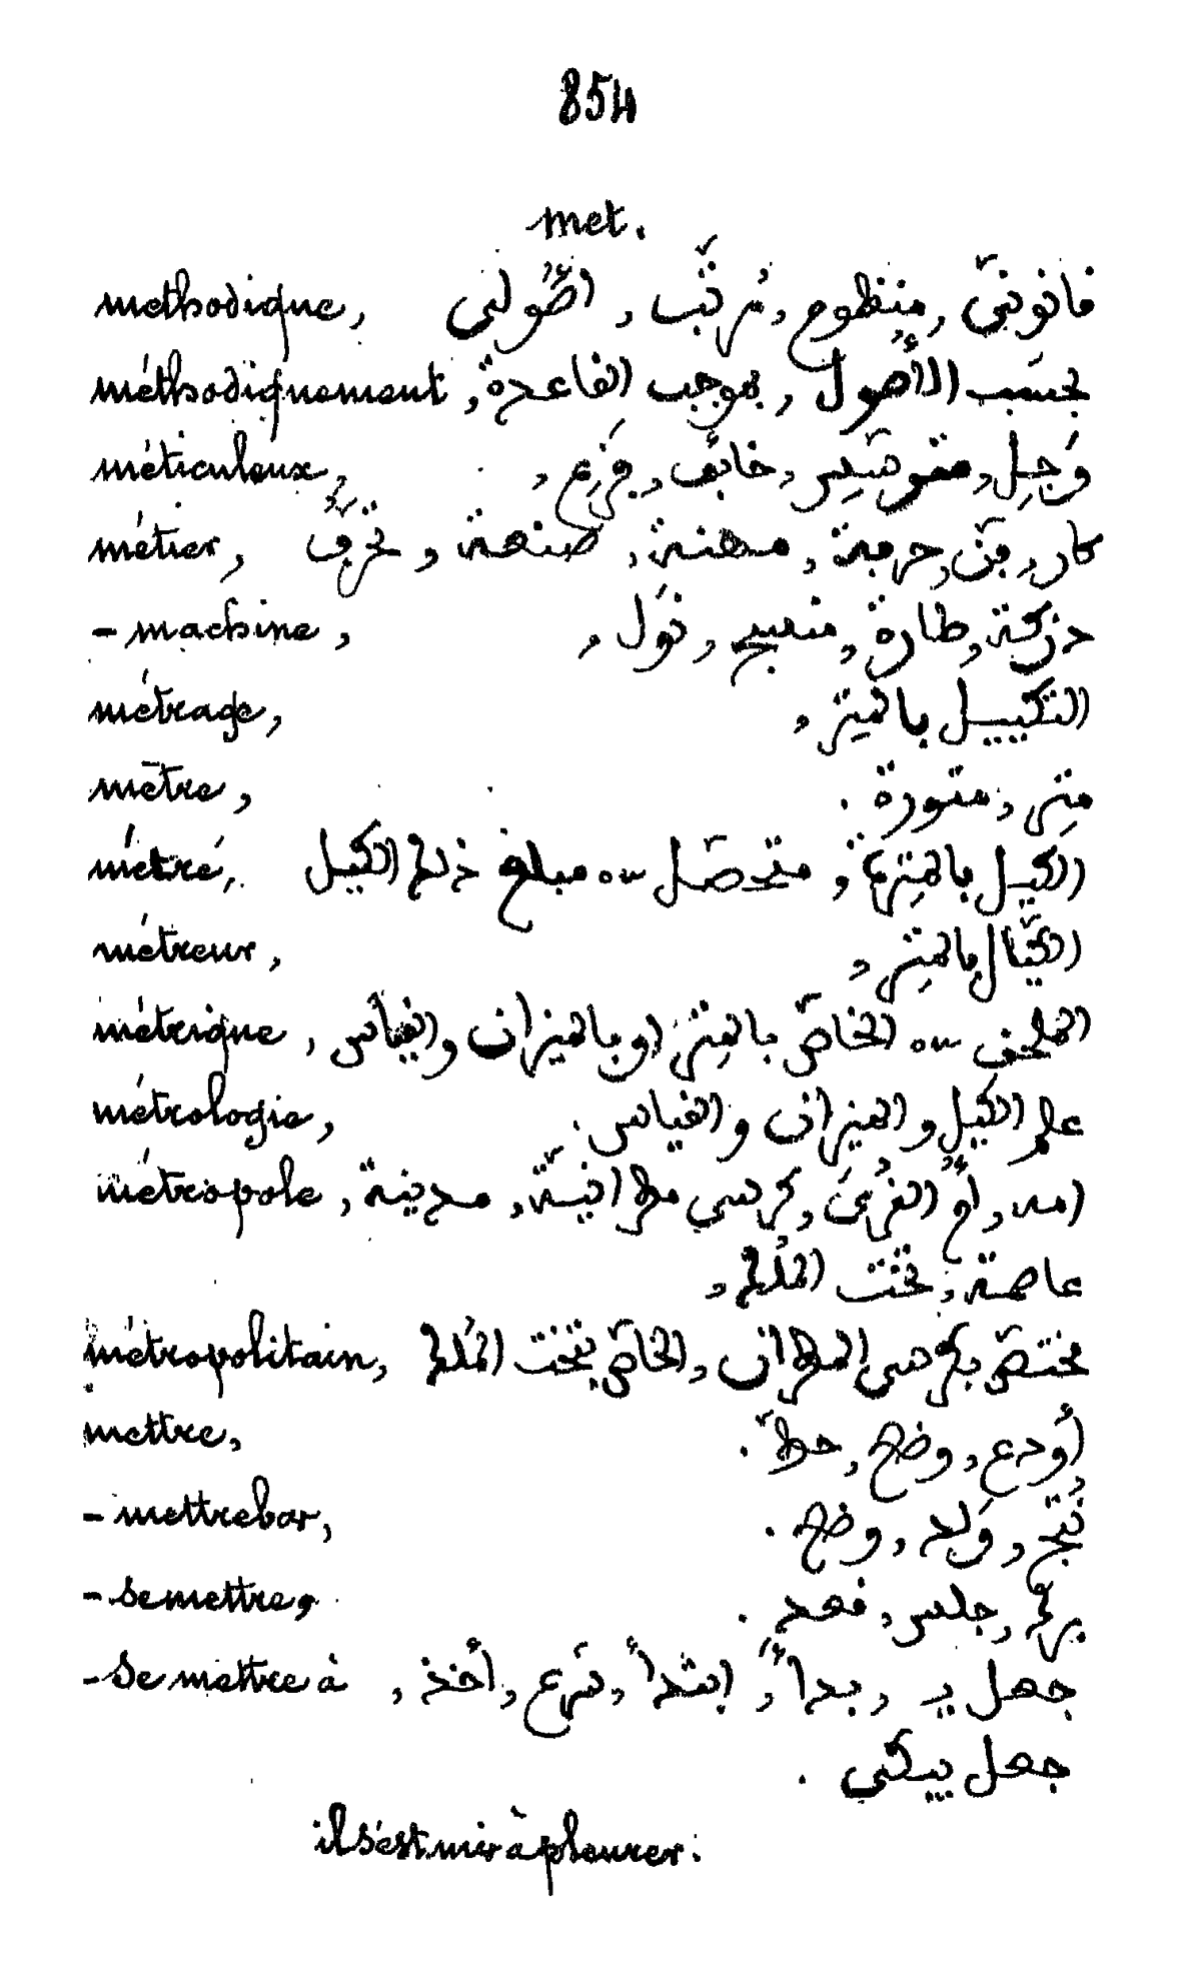 854
met.
methodique, قانونيّ, منظوم, مُرتَّب, اصُولي
méthodiquement, بحسَب الأُصول, بموجب القاعدة,
méticuleux, وَجِل, خائف, فَزِع,
métier, كار, فنّ, حرفة, مهنة, صنعة,
- machine, طارة, منسج, نَول,
métrage, التكييل بالمِتر,
mètre, مِتر,
métré, الكيل بالمِتر, متحصّل مبلغ ذلك الكيل
métreur, الكيّال بالمِتر,
métrique, الخاصّ بالمِتر او بالميزان والقياس,
métrologie, علم الكيل والميزان والقياس.
métropole, أُمُّ القُرَى, كرسي مطرانيّة, مدينة,
تخت المُلك,
métropolitain, مختصّ بكرسي المطران, الخاصّ بتخت المُلك
mettre, أودع, وضع, حطّ.
- mettrebar, نُتِج, وَلد, وضع.
- se mettre, برك, جلس, قعد.
- se mettre à جعل يـ, بدأ, ابتدأ, شرع, أخذ,
جعل يبكي.
il s'est mis à pleurer.